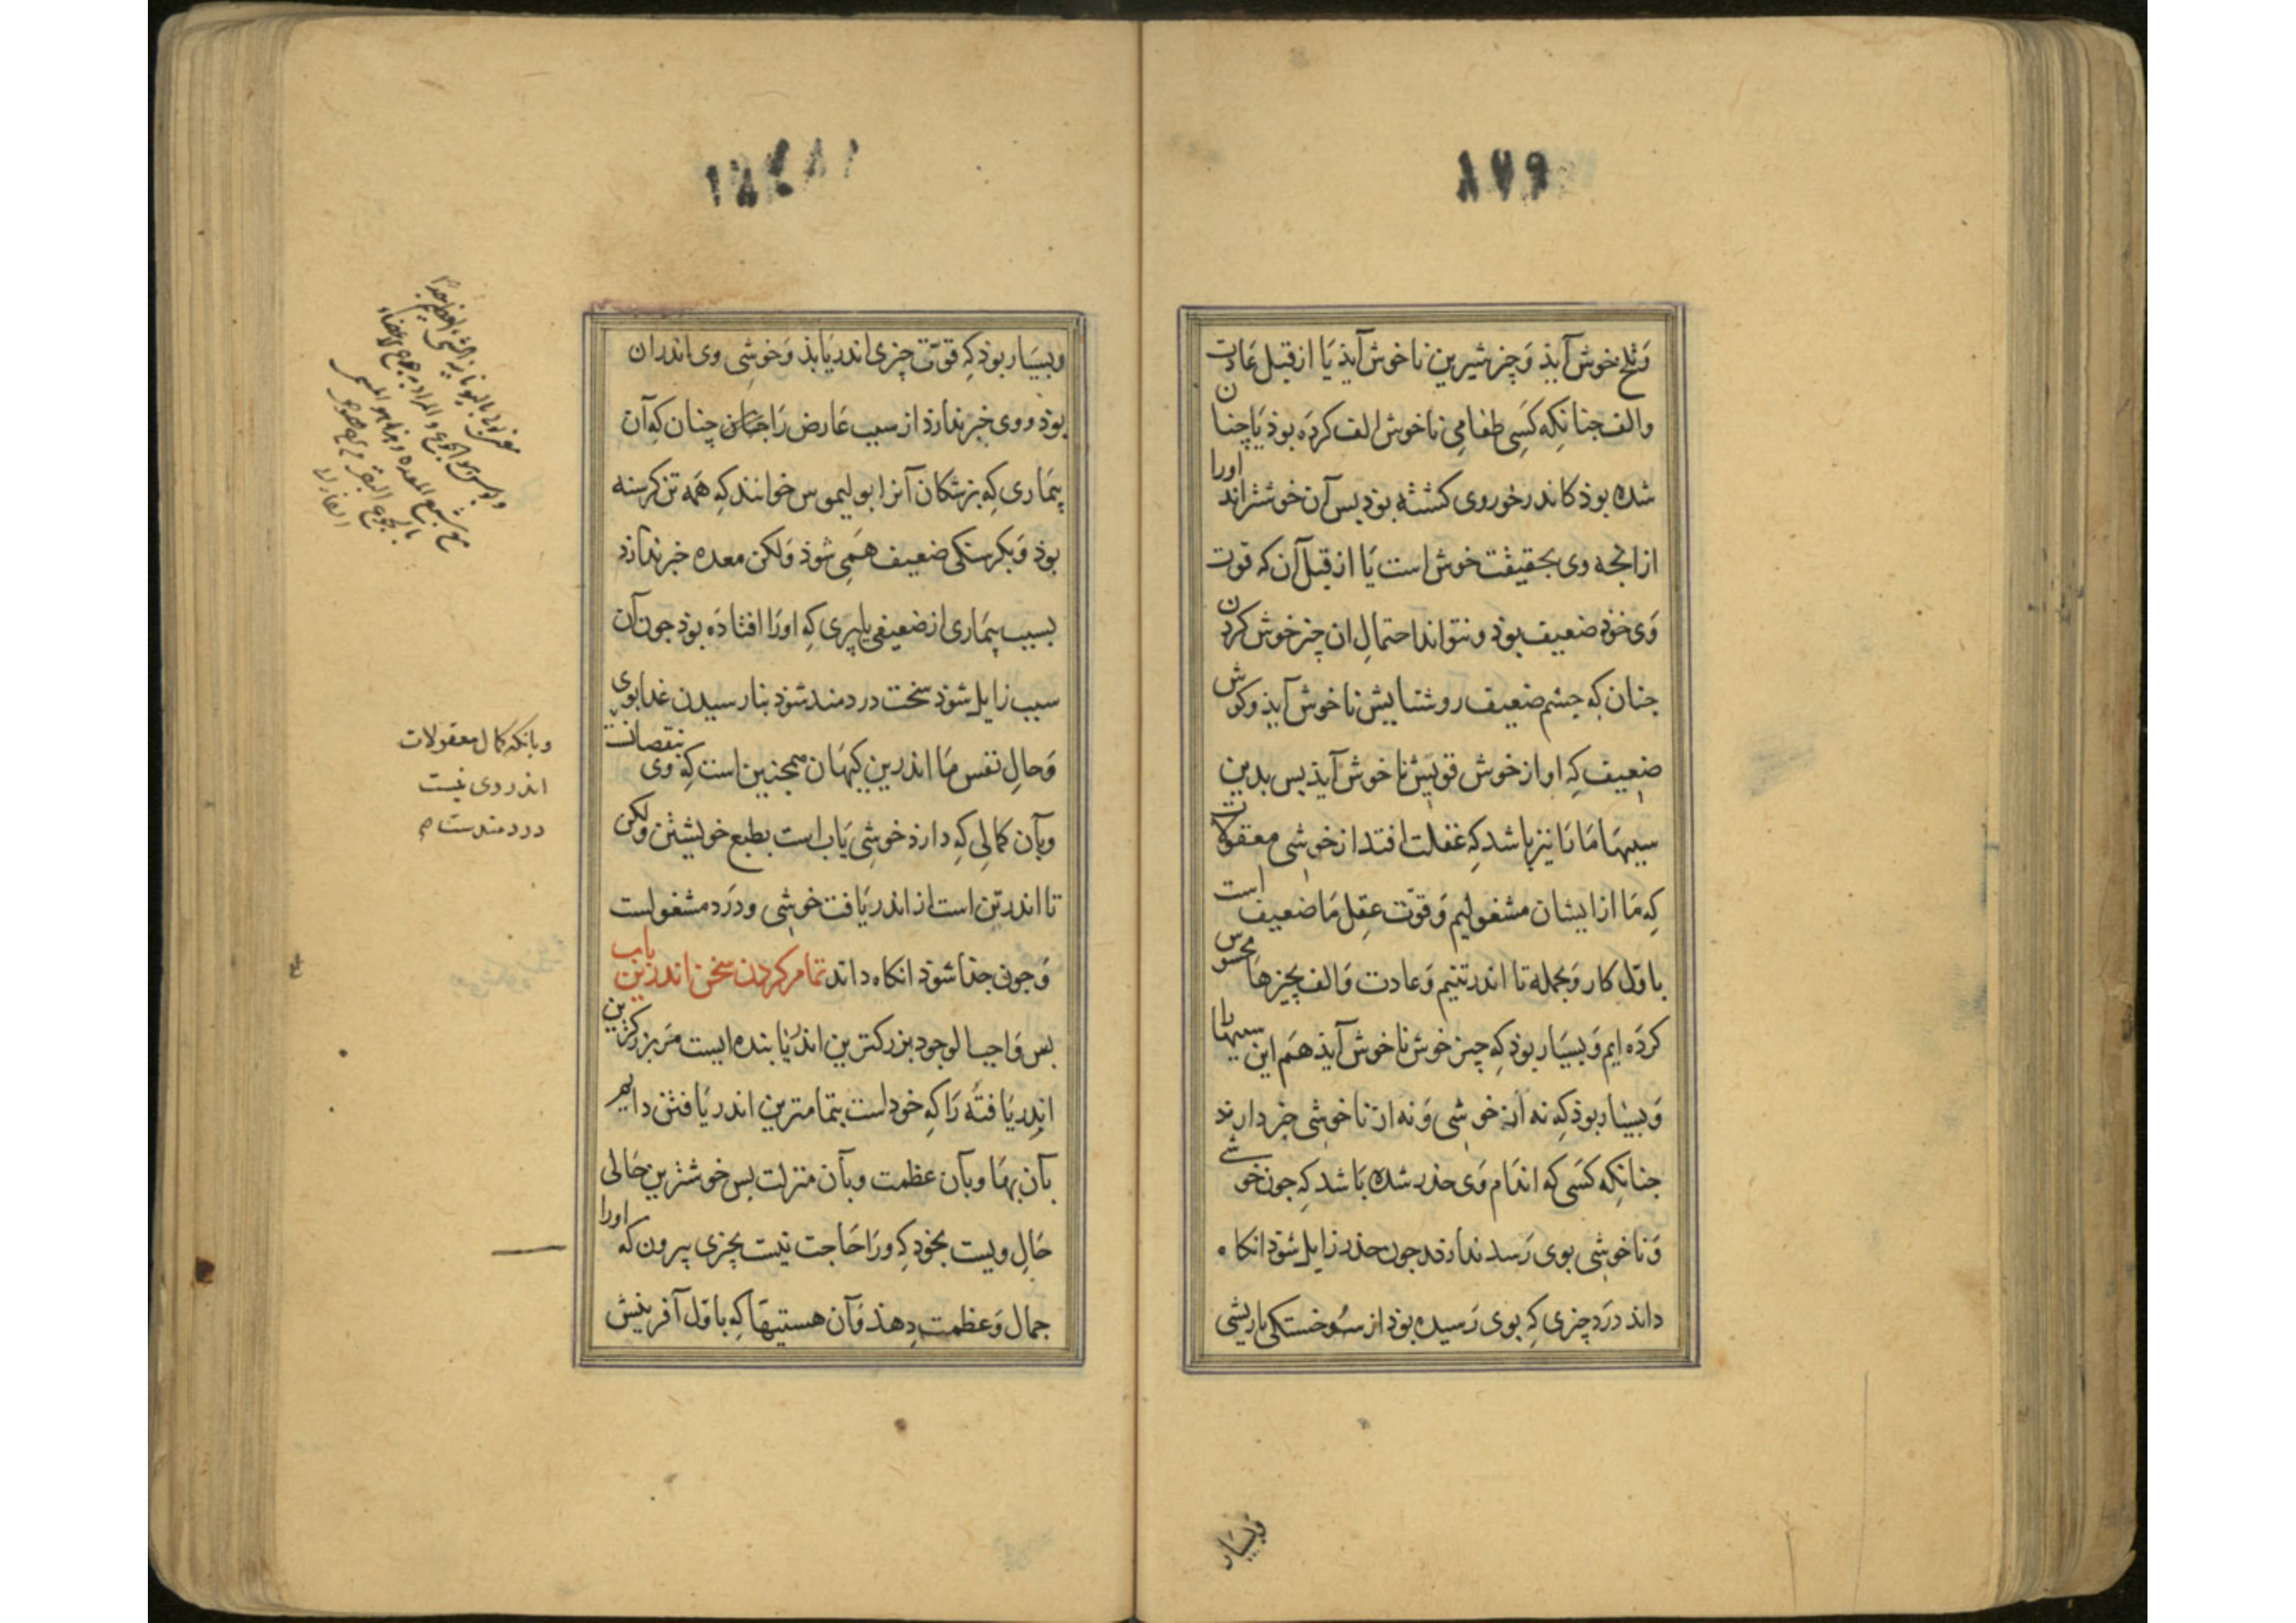 ۸۷۹
وتلخ خوش آیذ وَچیز شیرین ناخوش آیذ یَا از قبل عَادت
والف جنانکِه کسَی طعامِی ناخوش الف کرده بوذ یَا چنان
شده بوذ کاندر خور وی کشته بوذ بس آن خوشتر اند اورا
از انجه وی بحقیقت خوش است یَا از قبل آن که قوت
وَی خوذ ضعیف بوذ و نتواند احتمالِ ان چیز خوش کردن
جنان که جشم ضعیف روشنایش ناخوش آیذ و کوش
ضعیف کِه اواز خوش قویش ناخوش آیذ بس بدین
سببهَا مَا نَا نیز باشد کِه غفلت افتد از خوشی معقولات
کِه مَا از ایشان مشغولیم وَ قوّت عقل مَا ضعیف است
باوّل کار وَبجمله تا اندر تنیم وَعادت وَالف بچیزهَا محسوس
کرده ایم وَبسیَار بوذ کِه چیز خوش ناخوش آیذ هَم این سببهَا را
وَبسیار بوذ کِه نه از خوشی وَنه از ناخوشی خبر دارند
جنانکِه کسَی که اندَام وَی خدر شده بَاشد کِه جون خوشی
وَناخوشی بوی رَسد نداند جون خدر زایل شوذ انکاه
داند دَرَد چیزی کِه بوی رَسیده بوذ از سوختکی یا ریشی
وَبسیَار
وبسیَار بوذ کِه قوّت چیزی اندر یَابذ وَخوشِی وی اندر ان
بوذ و وی خبر ندارذ از سبب عَارض رَا چنان که آن
بیمَاری کِه بزشکان آنرا بولیموس خوانند کِه همَه تن کرسنه
بوذ وَبکرسنکی ضعیف همَی شوذ وَلکن معده خبر ندارد
بسبب بیمَاری از ضعیفی یا پری کِه اورَا افتاذَه بوذ جون آن
سبب زایل شوذ سخت دردمند شوذ بنارسیدن غدا بوی
وَحالِ نفس مَا اندرین کیهَان همجنین است کِه وَی بنقصانست
وبآن کمالِی کِه دارذ خوشِی یَاب است بطبع خویشتن ولکن
تا اندر تن است از اندر یَافت خوشِی و دَرَد مشغولست
وَجون جذا شوذ انکاه داند تمام کردن سخن اندرین باب
بس وَاجب الوجود بزرکترین اندر یَابنده ایست مَر بزرکترین
اندر یَافته رَا کِه خود است بتمامترین اندر یَافتن دایم
بآن بهَا وبآن عظمت وبآن منزلت بس خوشترین حَالی
حَالِ ویست بخود کِه ورَا حَاجت نیست بچیزی بیرون که اورا
جمال وَعظمت دِهذ وَآن هستیهَا کِه باوّل آفرینش
وبانکه کمال معقولات
اندر وی نیست
دردمندست